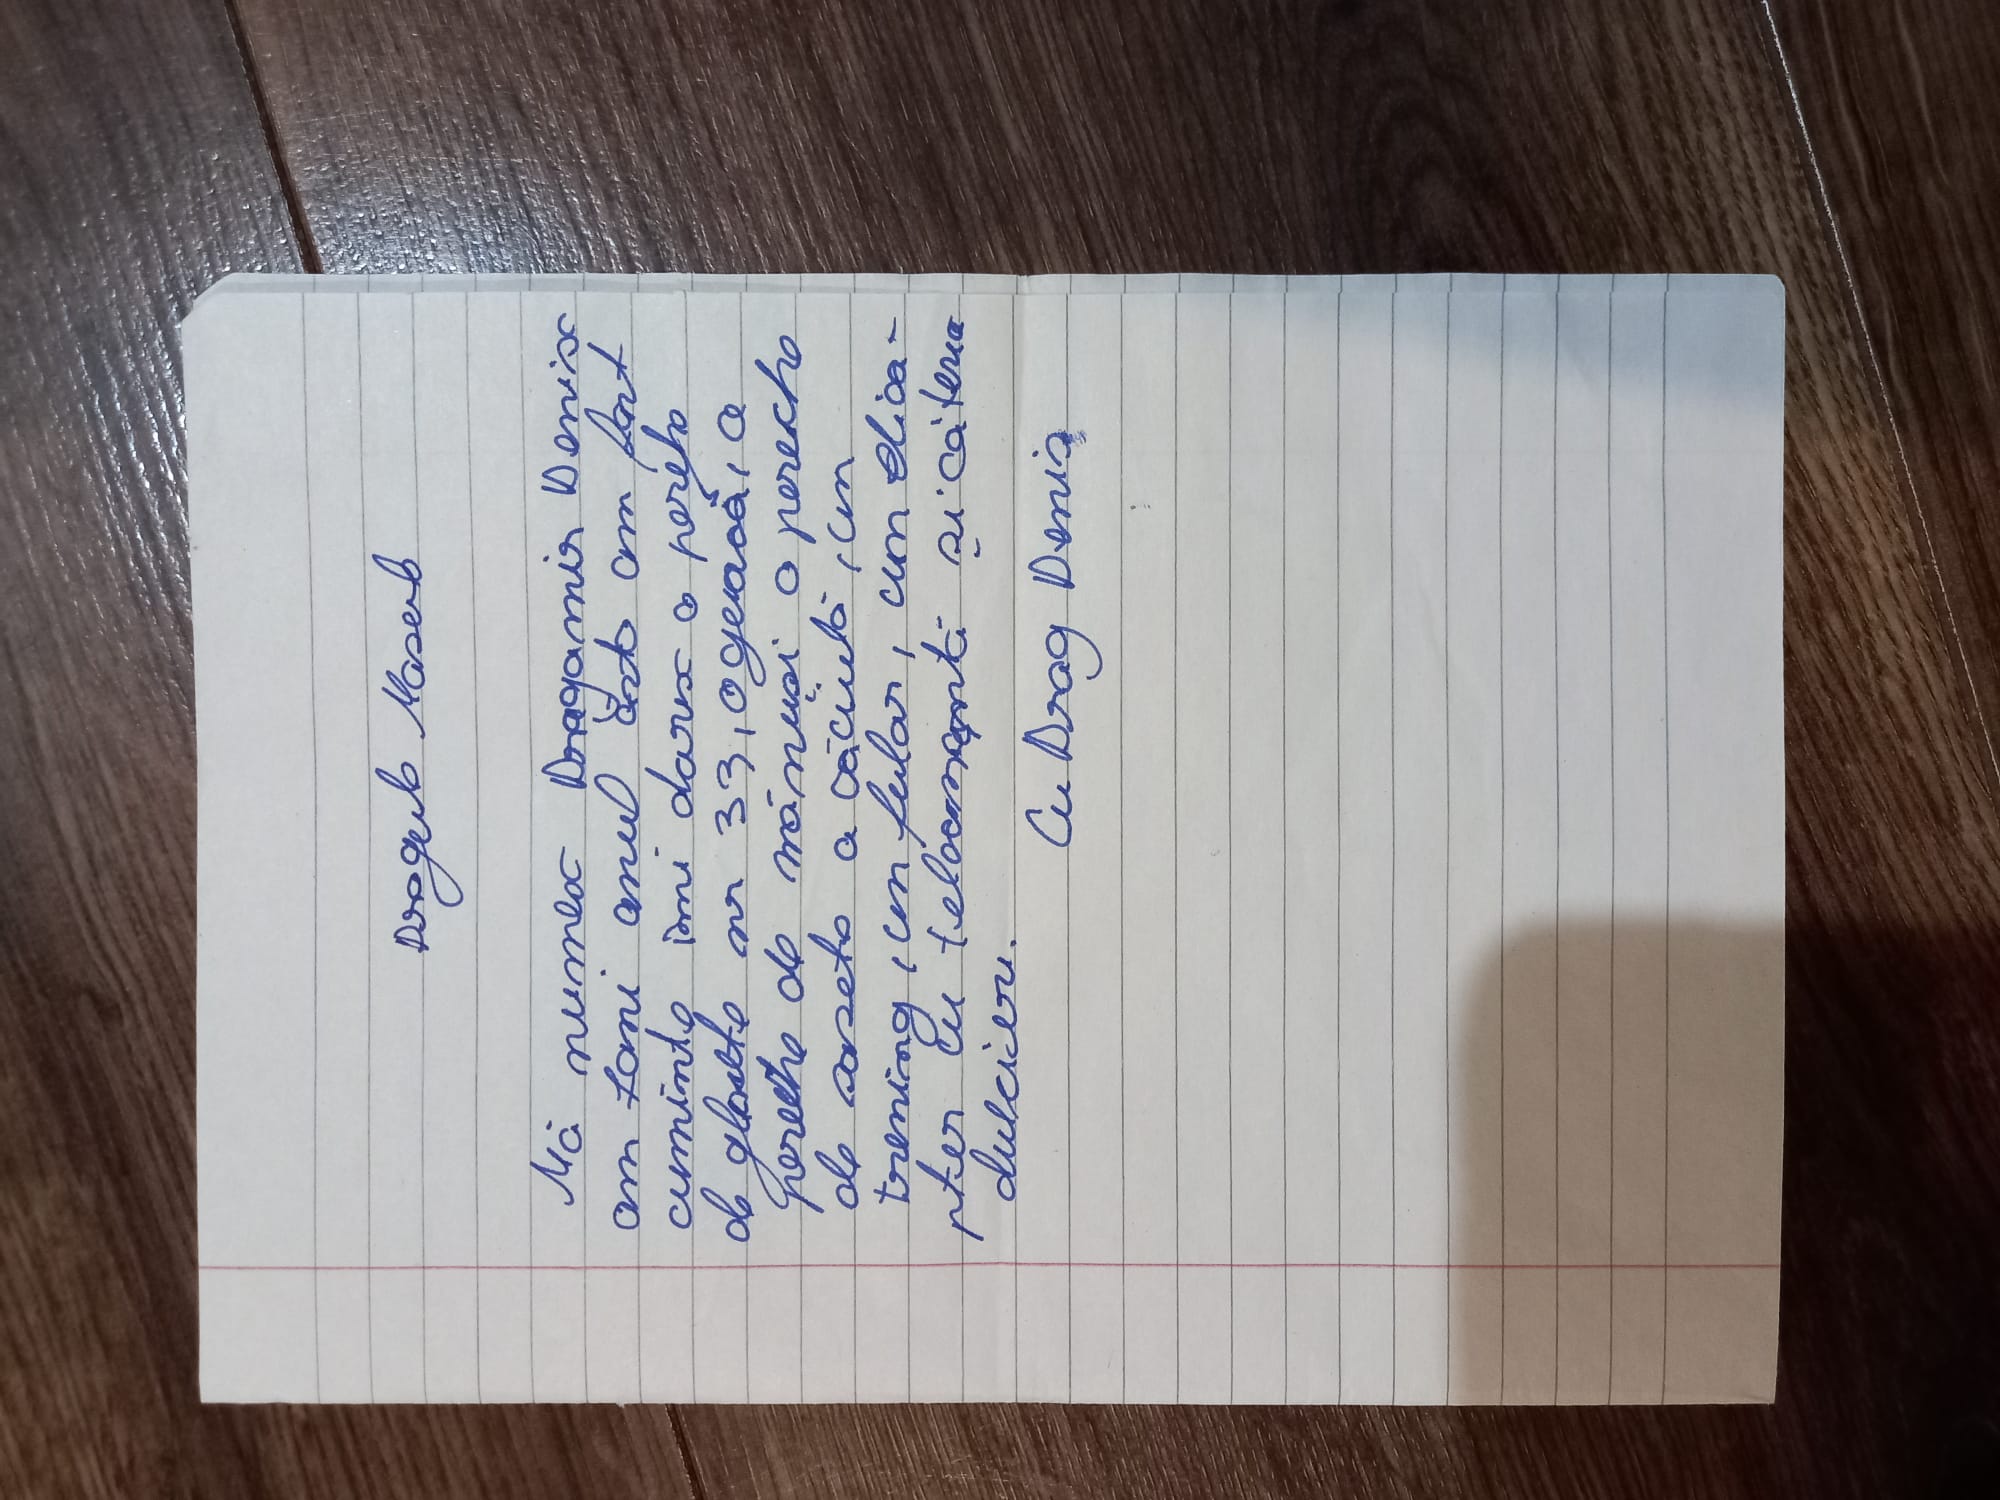 Dragul Mosul
Mă numex Dragamir Denisx
am 1 ani anul ăsta am fost
cuminte îmi darex o pereho
de ghete nr 33, o geacă, o
pereche de mănuși o pereche
de șosete a căciulă, un
trening, un fular, cun elica-
pter cu telocmantă și câteva
dulciuri.
Cu Drag Denis